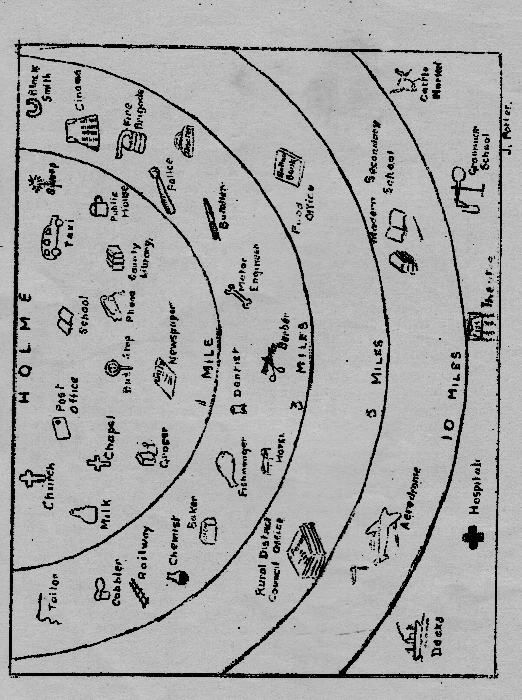 HOLME
Church
Post
Office
School
Taxi
Sweep
Milk
Chapel
Bus Stop
Phone
County
Library
Public
House
Grocer
Newspaper
1 MILE
Tailor
Cobbler
Railway
Chemist
Baker
Fishmonger
Dentist
Motor
Engineer
Butcher
Police
Doctor
Fire
Brigade
Cinema
Black
Smith
Rural District
Council Office
Hotel
Barber
3 MILES
Food
Office
Ration
Book
Aerodrome
5 MILES
Modern Secondary
School
Docks
Hospitals
10 MILES
Theatre
Grammar
School
Cattle
Market
J. Potter.